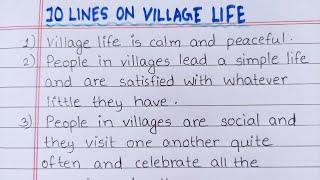 10 LINES ON VILLAGE LIFE
1) Village life is calm and peaceful.
2) People in villages lead a simple life
and are satisfied with whatever
little they have.
3) People in villages are social and
they visit one another quite
often and celebrate all the